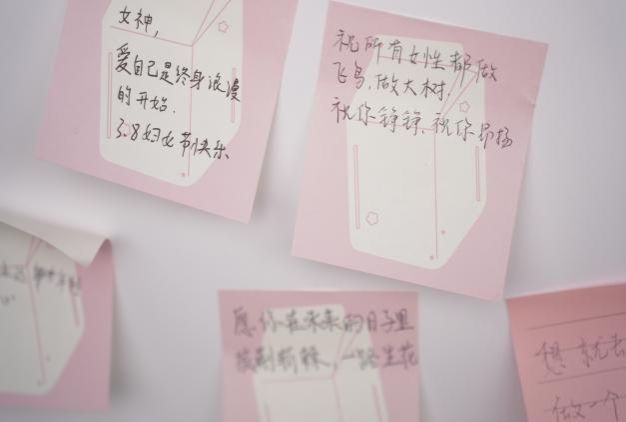 女神，
爱自己是终身浪漫
的开始.
3.8妇女节快乐
祝所有女性都做
飞鸟,做大树.
祝你铮铮,祝你昂扬
愿你在未来的日子里
披荆斩棘，一路生花
想 就去
做一个